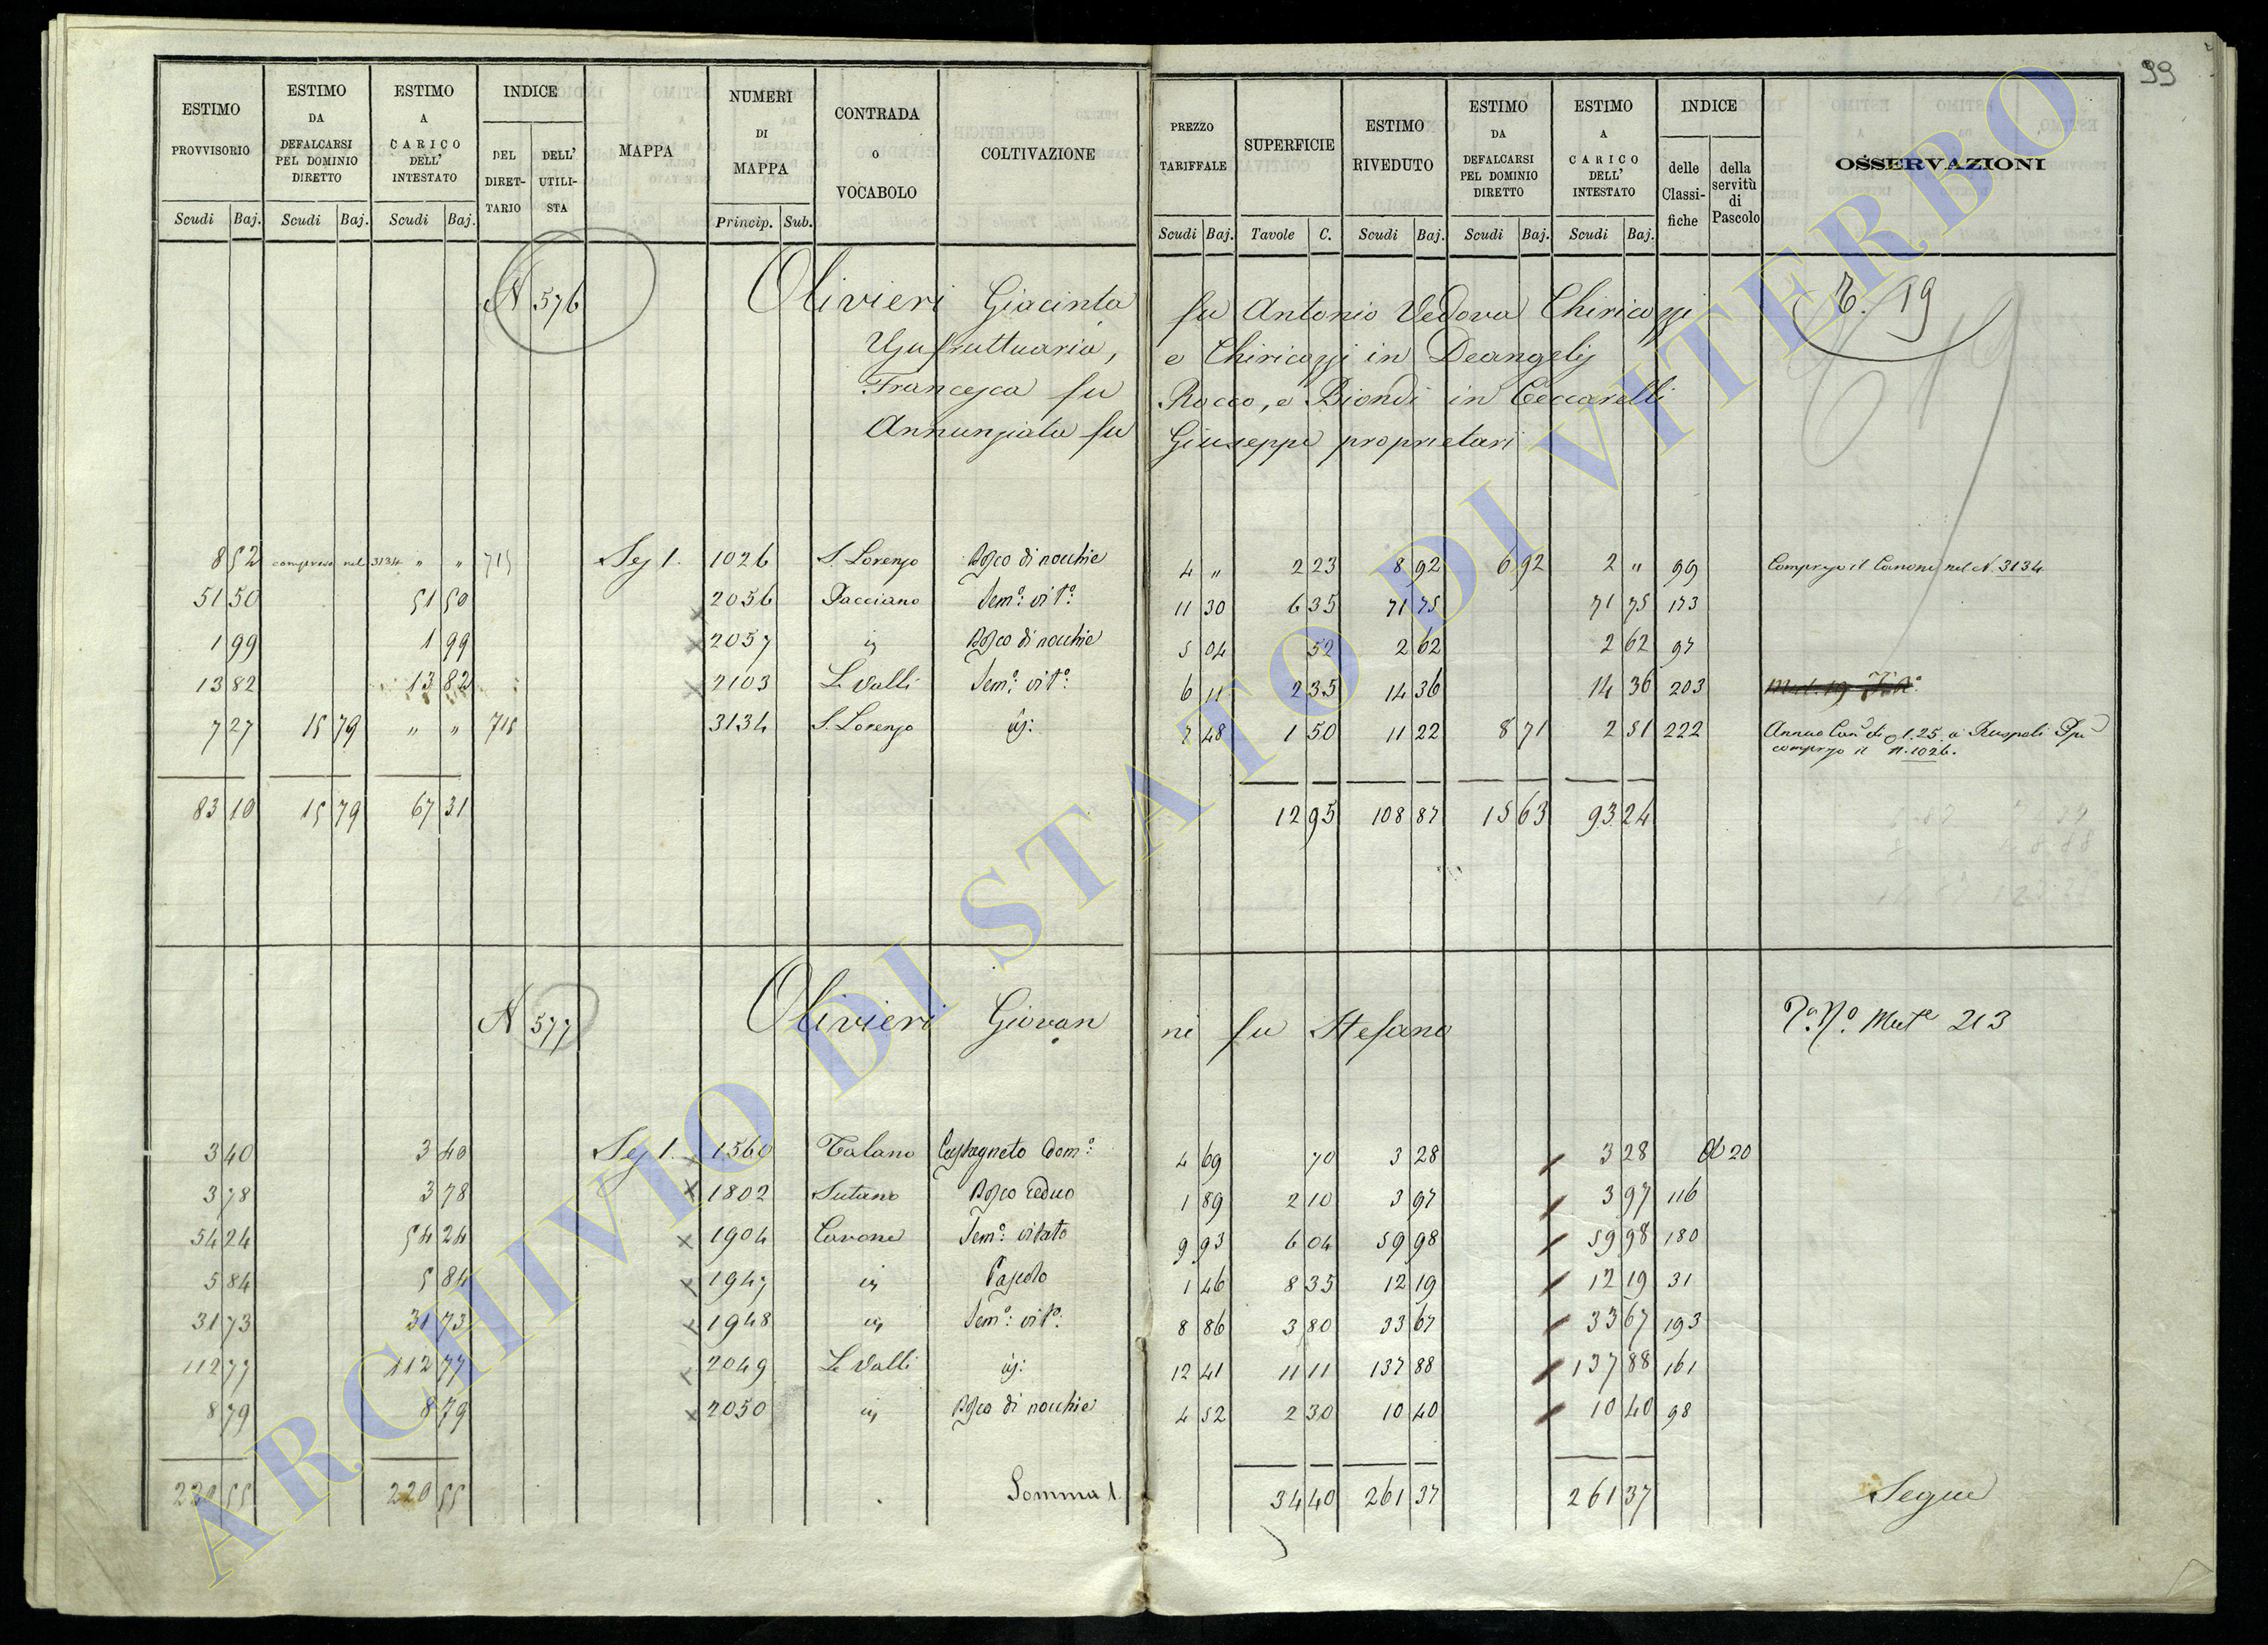 99
ESTIMO PROVVISORIO
ESTIMO DA DEFALCARSI PEL DOMINIO DIRETTO
ESTIMO A CARICO DELL' INTESTATO
INDICE
DEL DIRET-TARIO
DELL' UTILI-STA
MAPPA
NUMERI DI MAPPA
CONTRADA O VOCABOLO
COLTIVAZIONE
PREZZO TARIFFALE
SUPERFICIE
ESTIMO RIVEDUTO
ESTIMO DA DEFALCARSI PEL DOMINIO DIRETTO
ESTIMO A CARICO DELL' INTESTATO
INDICE
delle Classi-fiche
della servitù di Pascolo
OSSERVAZIONI
Scudi Baj. Scudi Baj. Scudi Baj. Princip. Sub. Scudi Baj. Tavole C. Scudi Baj. Scudi Baj. Scudi Baj.
N 576 Olivieri Giacinta fu Antonio Vedova Chiricozzi
19
Usufruttuaria, e Chiricozzi in Deangelis
Francesca fu Rocco, e Biondi in Ceccarelli
Annunziata fu Giuseppe proprietari
8 52 compreso nel 3134 " " 715 Sez 1. 1026 S. Lorenzo Bosco di nocchie 4 " 2 23 8 92 6 92 2 " 99 Compreso il Canone nel N. 3134
51 50 51 50 2056 Pacciano Sem.o vit.o 11 30 6 35 71 75 71 75 173
1 99 1 99 2057 is Bosco di nocchie 5 04 52 2 62 2 62 97
13 82 13 82 2103 Le Valli Sem.o vit.o 6 11 2 35 14 36 14 36 203
7 27 15 79 " " 715 3134 S. Lorenzo is: 7 48 1 50 11 22 8 71 2 51 222 Annuo Can.e di 1.25 a Ruspoli
compreso il n. 1026.
83 10 15 79 67 31 12 95 108 87 15 63 93 24
N 577 Olivieri Giovanni fu Stefano
213
3 40 3 40 Sez 1. 1560 Talano Castagneto Dom.o 4 69 70 3 28 3 28 20
3 78 3 78 1802 Sutano Bosco ceduo 1 89 2 10 3 97 3 97 116
54 24 54 24 1904 Cavone Sem.o vitato 9 93 6 04 59 98 59 98 180
5 84 5 84 1947 is Pascolo 1 46 8 35 12 19 12 19 31
31 73 31 73 1948 is Sem.o vit.o: 8 86 3 80 33 67 33 67 193
112 77 112 77 2049 Le Valli is: 12 41 11 11 137 88 137 88 161
8 79 8 79 2050 is Bosco di nocchie 4 52 2 30 10 40 10 40 98
220 55 220 55 Somma 1. 34 40 261 37 261 37 Segue
ARCHIVIO DI STATO DI VITERBO